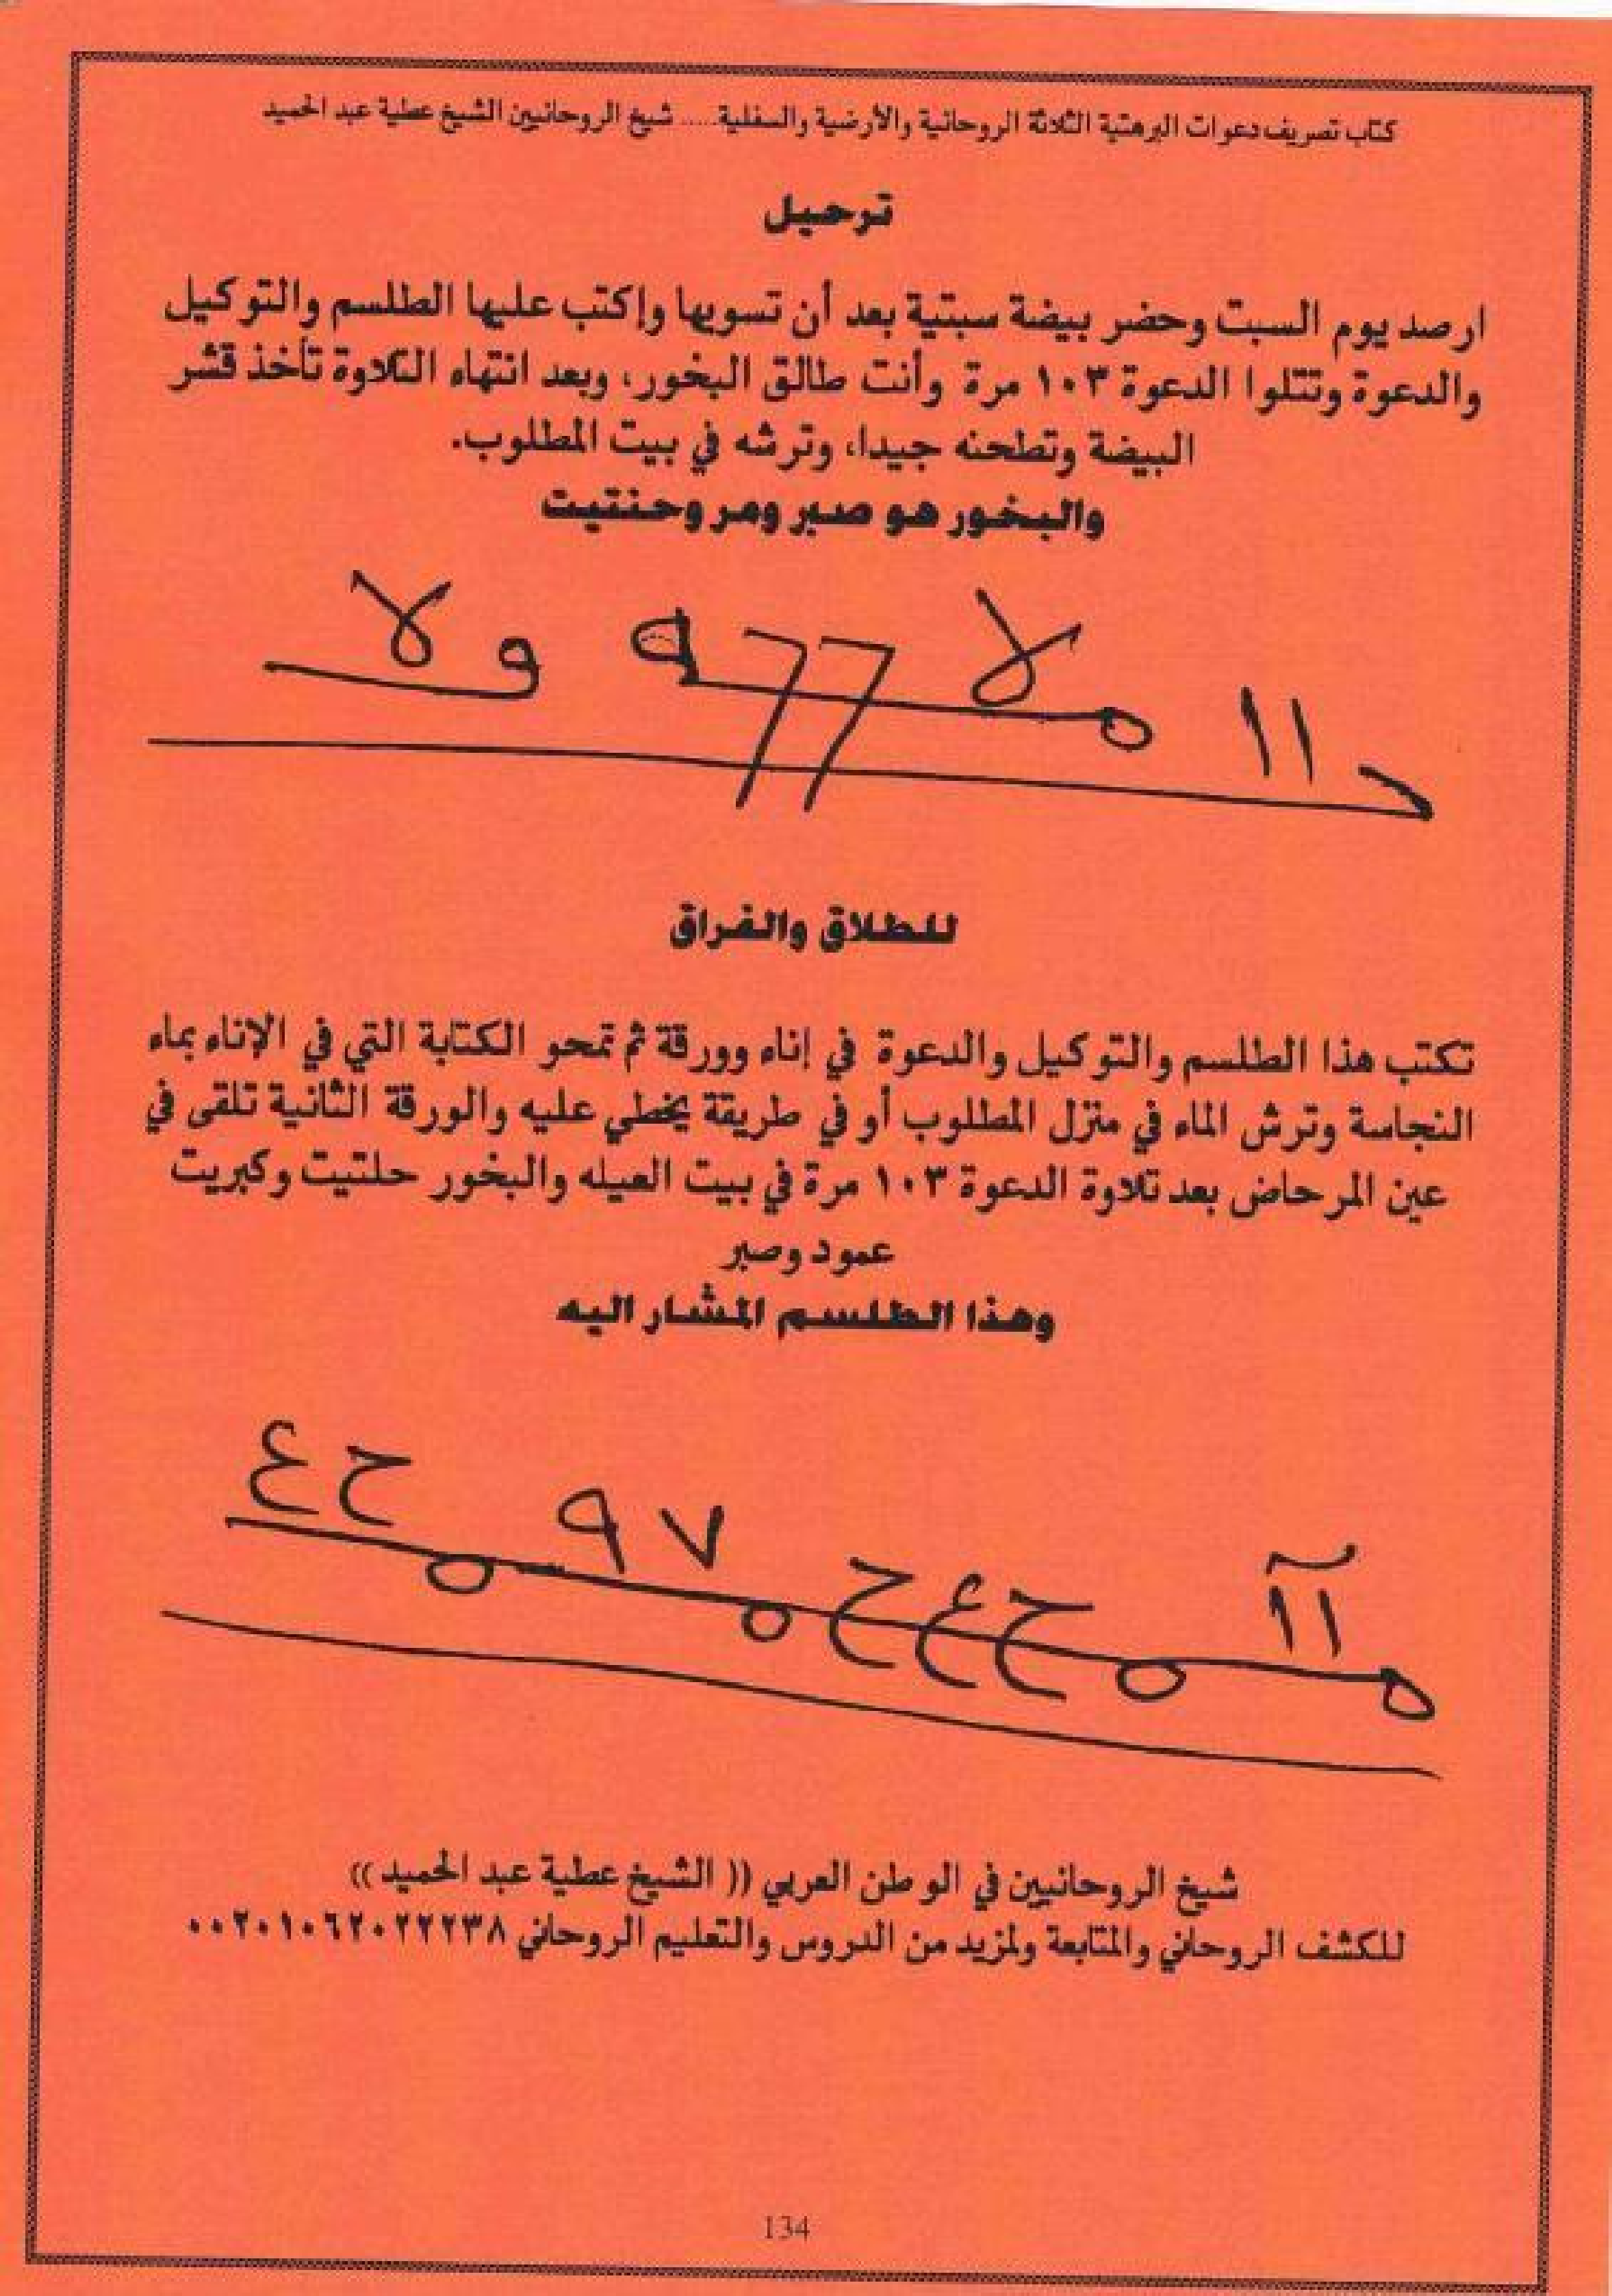 كتاب تصريف دعوات البرهتية الثلاثة الروحانية والأرضية والسفلية..... شيخ الروحانيين الشيخ عطية عبد الحميد
ترحيل
ارصد يوم السبت وحضر بيضة سبتية بعد أن تسويها وإكتب عليها الطلسم والتوكيل
والدعوة وتتلوا الدعوة ١٠٣ مرة وأنت طالق البخور، وبعد انتهاء التلاوة تأخذ قشر
البيضة وتطحنه جيدا، وترشه في بيت المطلوب.
والبخور هو صبر ومر وحنتيت
للطلاق والفراق
تكتب هذا الطلسم والتوكيل والدعوة في إناء وورقة ثم تمحو الكتابة التي في الإناء بماء
النجاسة وترش الماء في منزل المطلوب أو في طريقة يخطي عليه والورقة الثانية تلقى في
عين المرحاض بعد تلاوة الدعوة ١٠٣ مرة في بيت العيله والبخور حلتيت وكبريت
عمود وصبر
وهذا الطلسم المشار اليه
ح ع
٧ ٩
ح ع ح
شيخ الروحانيين في الوطن العربي (( الشيخ عطية عبد الحميد ))
للكشف الروحاني والمتابعة ولمزيد من الدروس والتعليم الروحاني ٠٠٢٠١٠٦٢٠٢٢٢٣٨
134